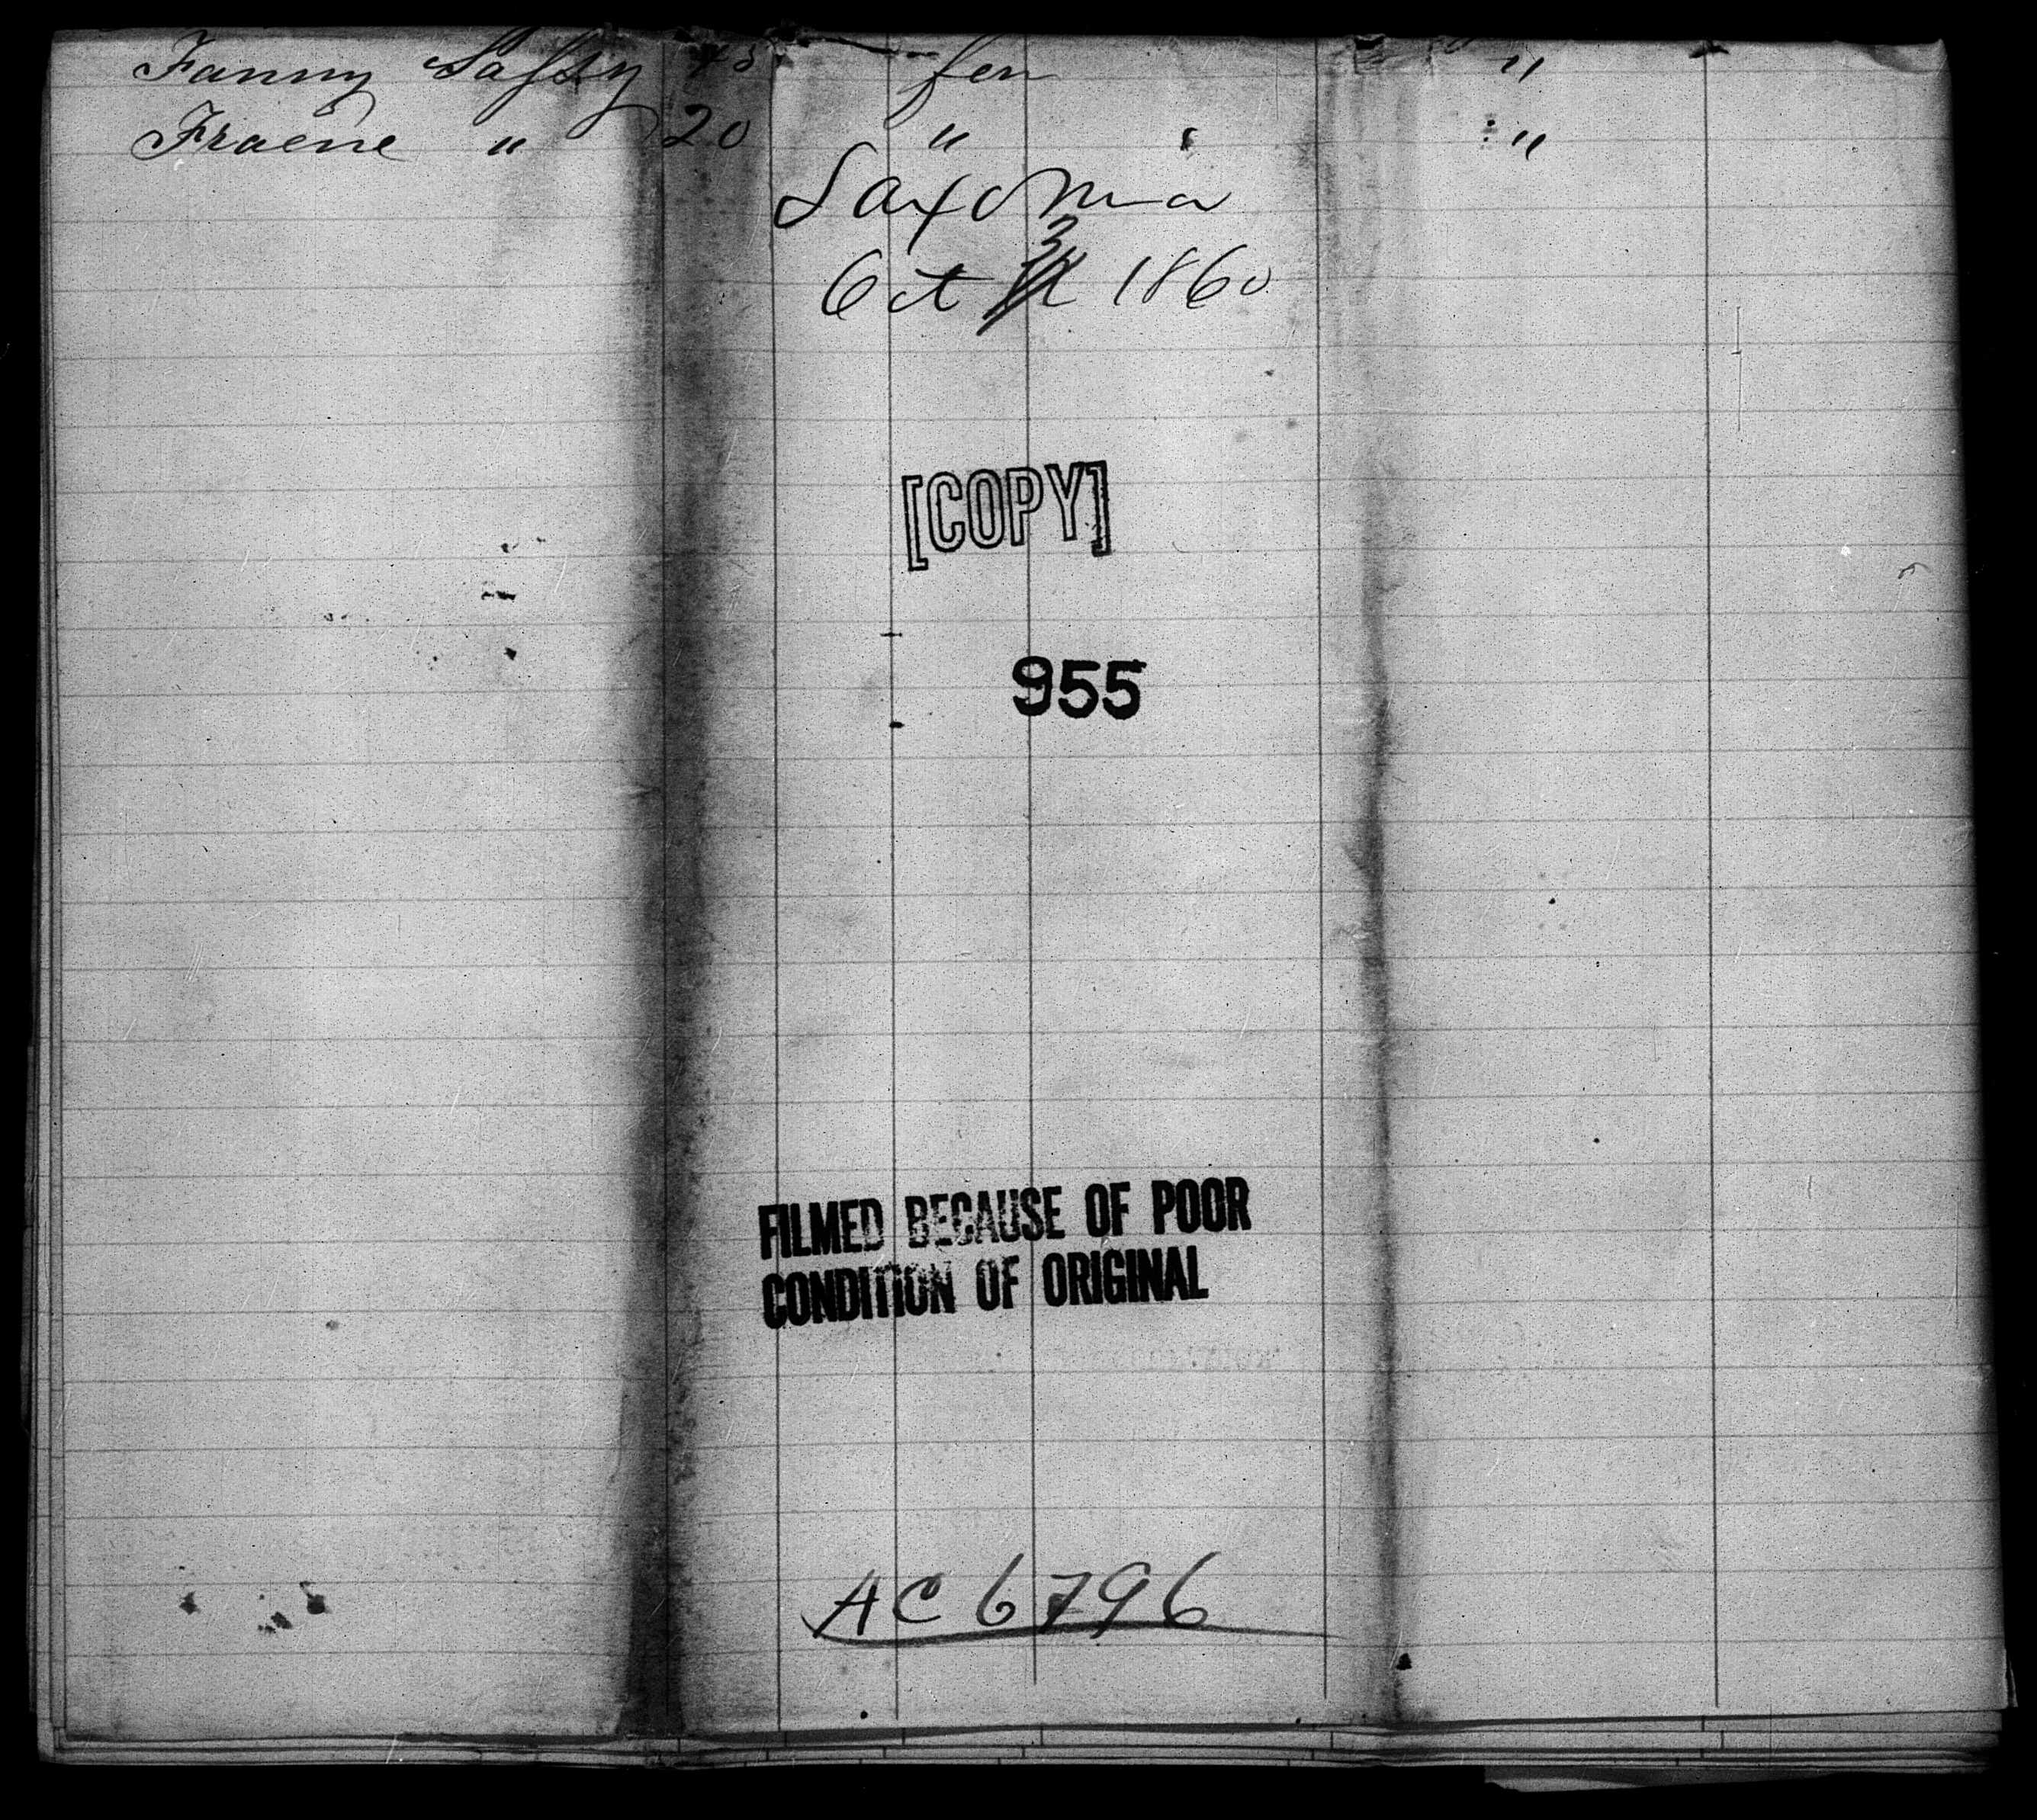 Fanny 45 fem "
Fraene " 20 " "
Saxonia
Oct 3 1860
[COPY]
955
FILMED BECAUSE OF POOR
CONDITION OF ORIGINAL
AC 6796